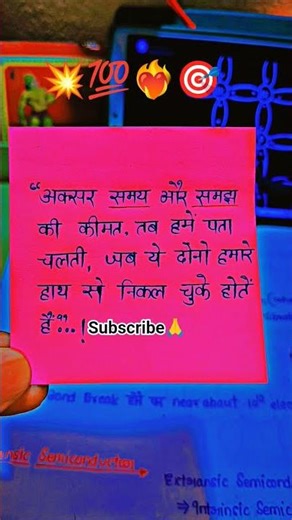 💥💯❤️‍🔥🎯
“अक्सर समय और समझ
की कीमत, तब हमें पता
चलती, जब ये दोनो हमारे
हाथ से निकल चुके होतें
हैं”...!
Subscribe🙏
ond Break होने पर near about 10⁶ elec
nsic Semiconductor
Extransic Semicond
→ Intrinsic Semicon